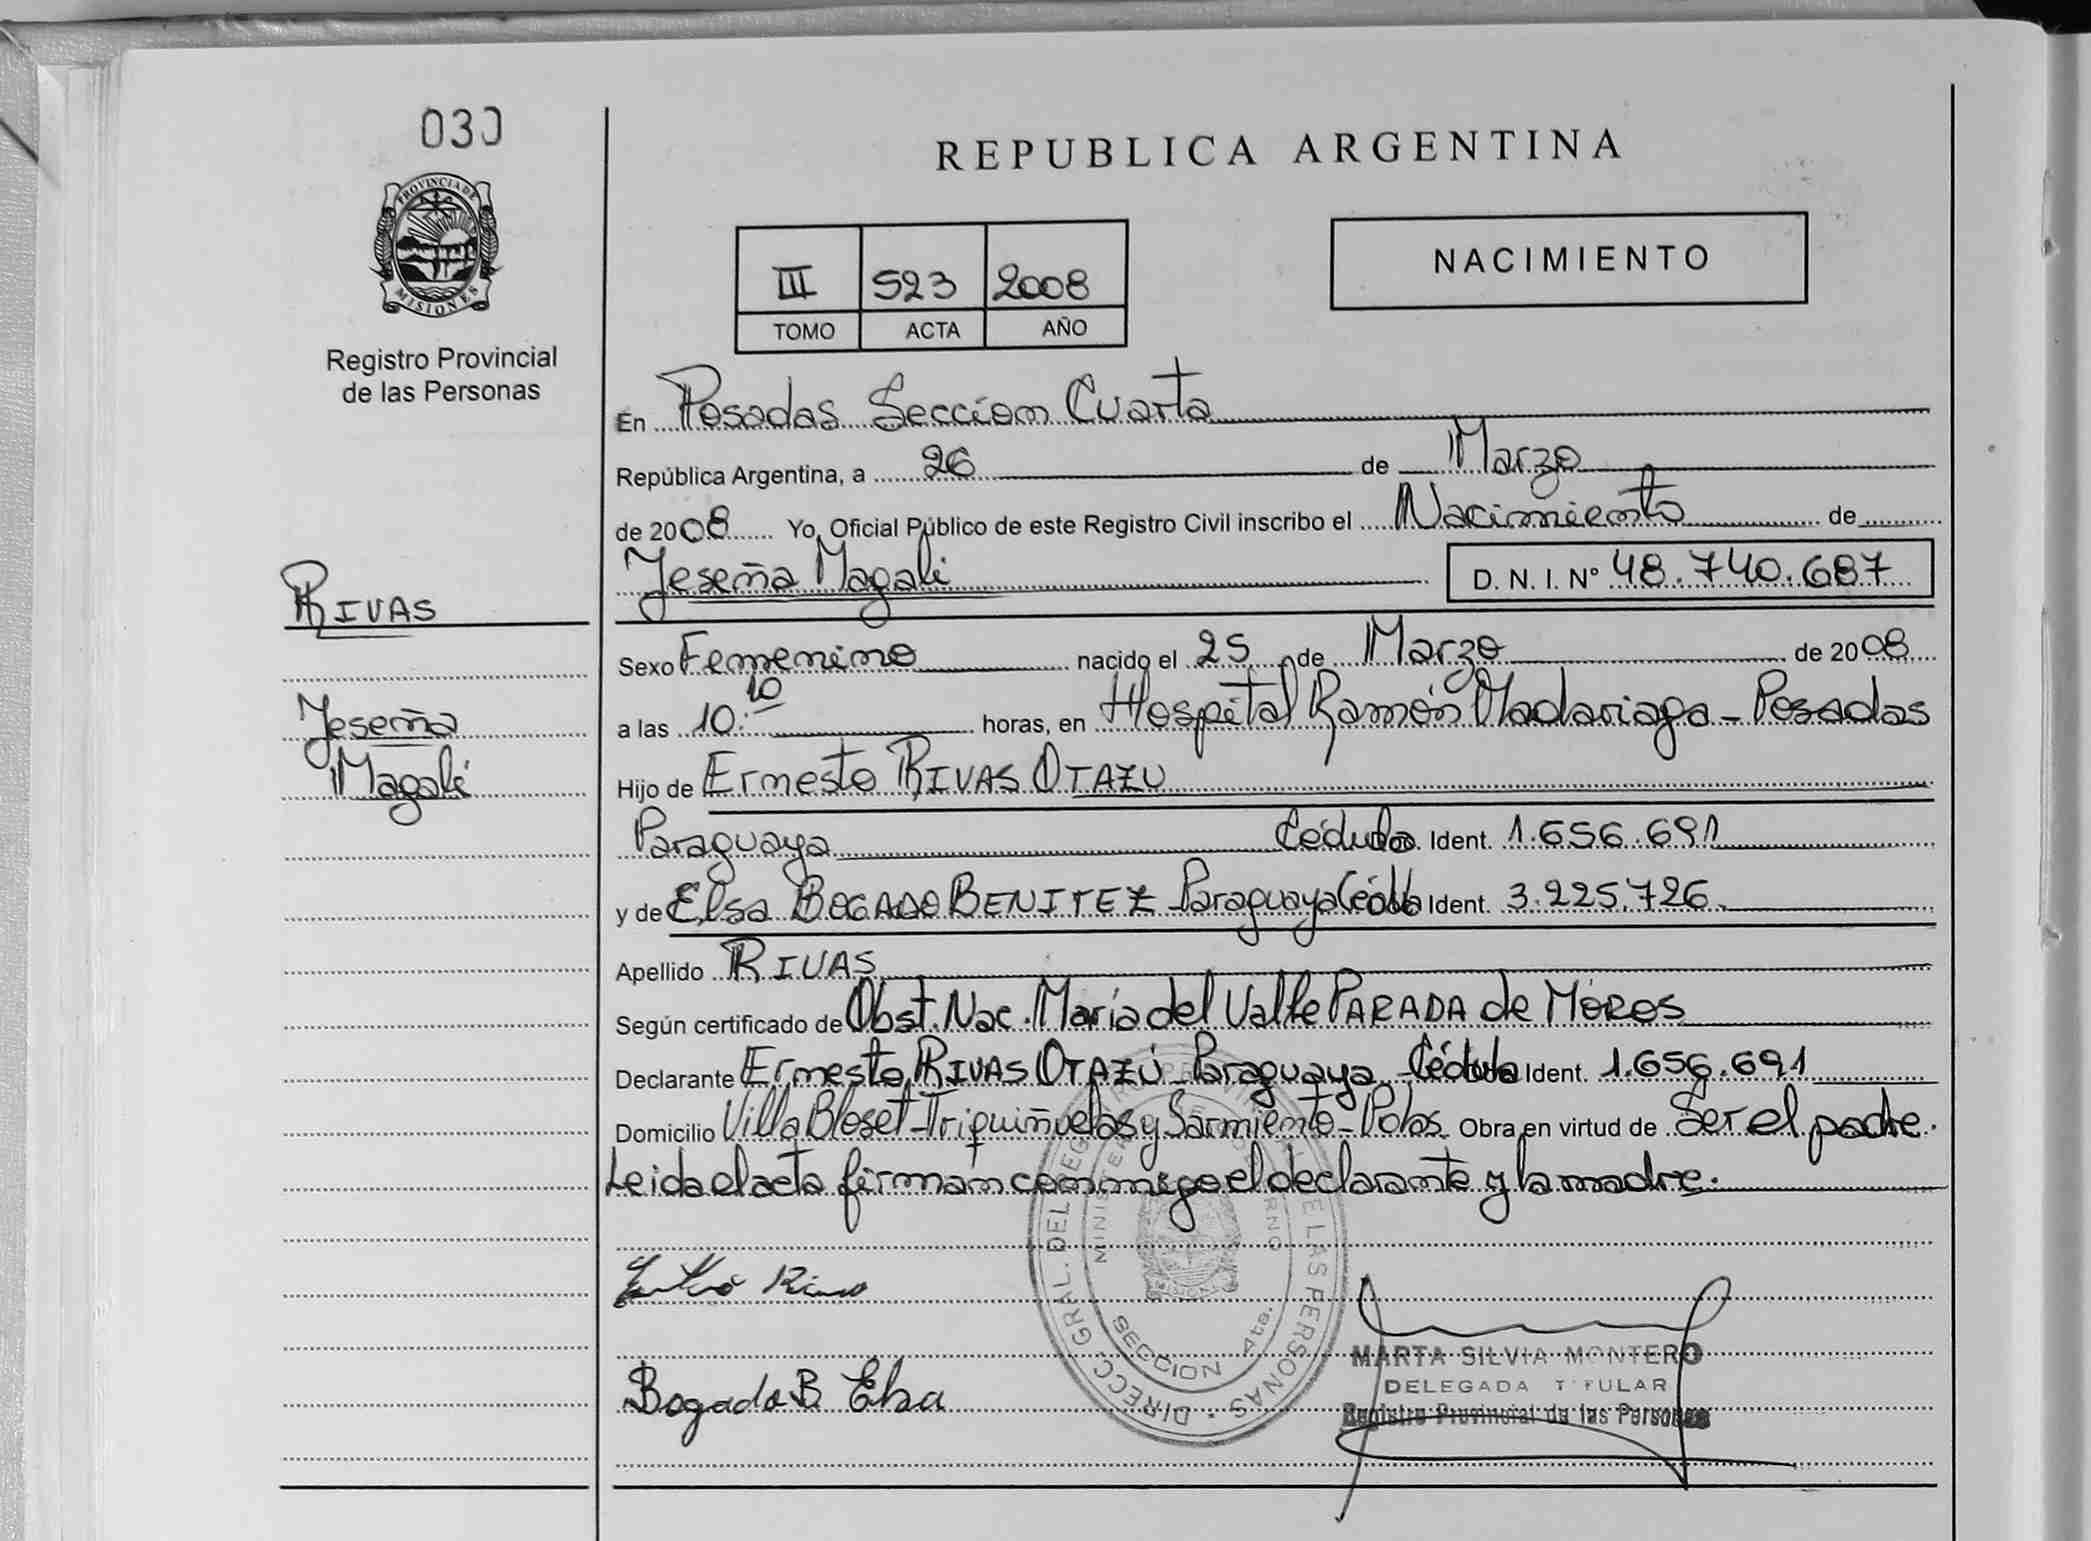 030
PROVINCIA DE
MISIONES
Registro Provincial
de las Personas
REPUBLICA ARGENTINA
III 523 2008
TOMO ACTA AÑO
NACIMIENTO
En Posadas Sección Cuarta
República Argentina, a 26 de Marzo
de 2008 Yo, Oficial Público de este Registro Civil inscribo el Nacimiento de
Yeseña Magali D. N. I. Nº 48.740.687
RIVAS
Yeseña
Magali
Sexo Femenino nacido el 25 de Marzo de 2008
a las 10:10 horas, en Hospital Ramón Madariaga - Posadas
Hijo de Ernesto RIVAS OTAZU
Paraguaya Cédula Ident. 1.656.691
y de Elsa BOGADO BENITEZ Paraguaya Cédula Ident. 3.225.726.
Apellido RIVAS
Según certificado de Obst. Nac. María del Valle PARADA de MOROS
Declarante Ernesto RIVAS OTAZÚ - Paraguaya Cédula Ident. 1.656.691
Domicilio Villa Bloset - Triquiñuelas y Sarmiento - Pdas. Obra en virtud de Ser el padre.
Leida el acta firman conmigo el declarante y la madre.
Rivas
Bogado B. Elsa
MARTA SILVIA MONTERO
DELEGADA TITULAR
Registro Provincial de las Personas
DIRECC. GRAL. DEL DE LAS PERSONAS
SECCION 4ta.